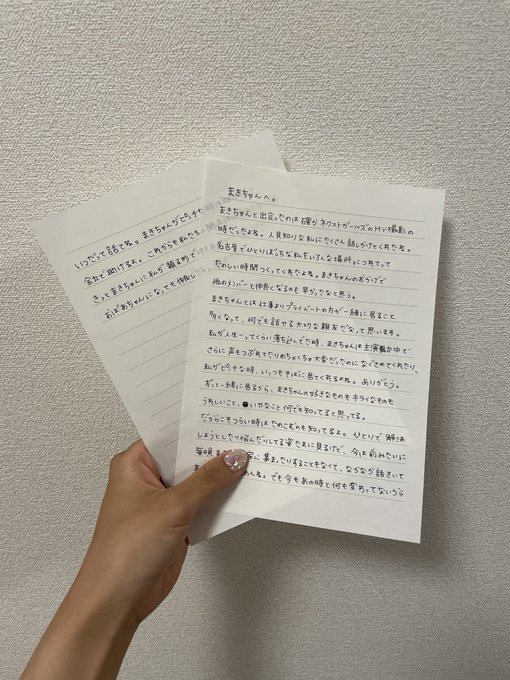 まきちゃんへ。
まきちゃんと出会ったのは確かネクストガールズのMV撮影の
時だったよね。人見知りな私にたくさん話しかけてくれたね。
名古屋でひとりぼっちな私をいろんな場所につれてって
たのしい時間つくってくれたよね。まきちゃんのおかげで
他のメンバーと仲良くなるのも早かったなと思う。
まきちゃんとは仕事よりプライベートの方が一緒に居ること
多くなって、何でも話せる大切な親友だなって思います。
私が人生一ってくらい落ち込んでた時、まきちゃんは主演舞台中で
さらに声もつぶれてたりめちゃくちゃ大変だったのになぐさめてくれたり、
私がピンチな時、いっつもそばに居てくれるのね。ありがとう。
ずっと一緒に居るから、まきちゃんの好きなものもキライなものも
うれしいこと、いやなこと何でも知ってると思ってる。
だからこそつらい時はためこむのも知ってるよ。ひとりで解決
しようとしたり悩んだりしてる姿たまに見るけど、今は前みたいに
毎晩 に集まったりすることもなくて、なかなか話きいて
あ めんね。でも今もあの時と何も変わってないから
いつだって話てね。まきちゃんがピンチな
全力で助けるよ。これからも私たち
きってまきちゃんに私が頼る形で
おばあちゃんになっても仲良し